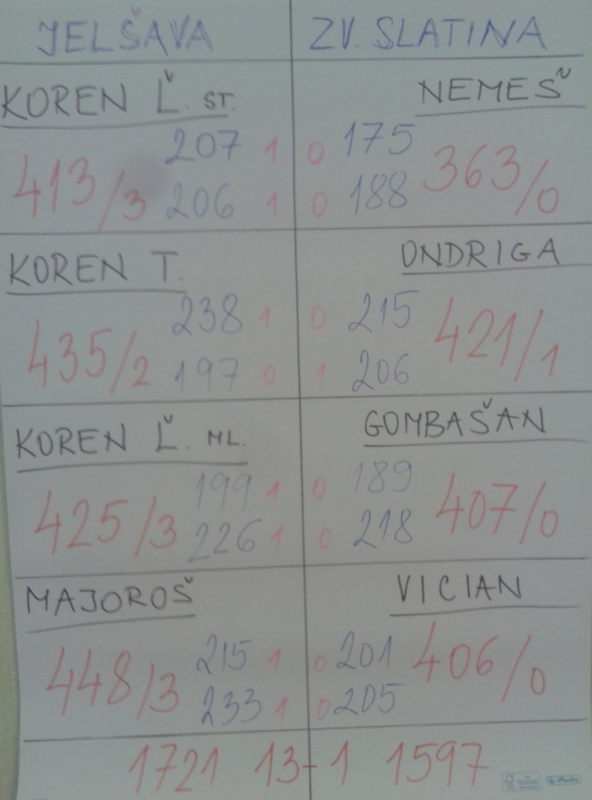 JELŠAVA ZV. SLATINA
KOREN Ľ. ST. NEMEŠ
207 1 0 175
413/3 363/0
206 1 0 188
KOREN T. ONDRIGA
238 1 0 215
435/2 421/1
197 0 1 206
KOREN Ľ. ML. GOMBAŠAN
199 1 0 189
425/3 407/0
226 1 0 218
MAJOROŠ VICIAN
215 1 0 201
448/3 406/0
233 1 0 205
1721 13-1 1597